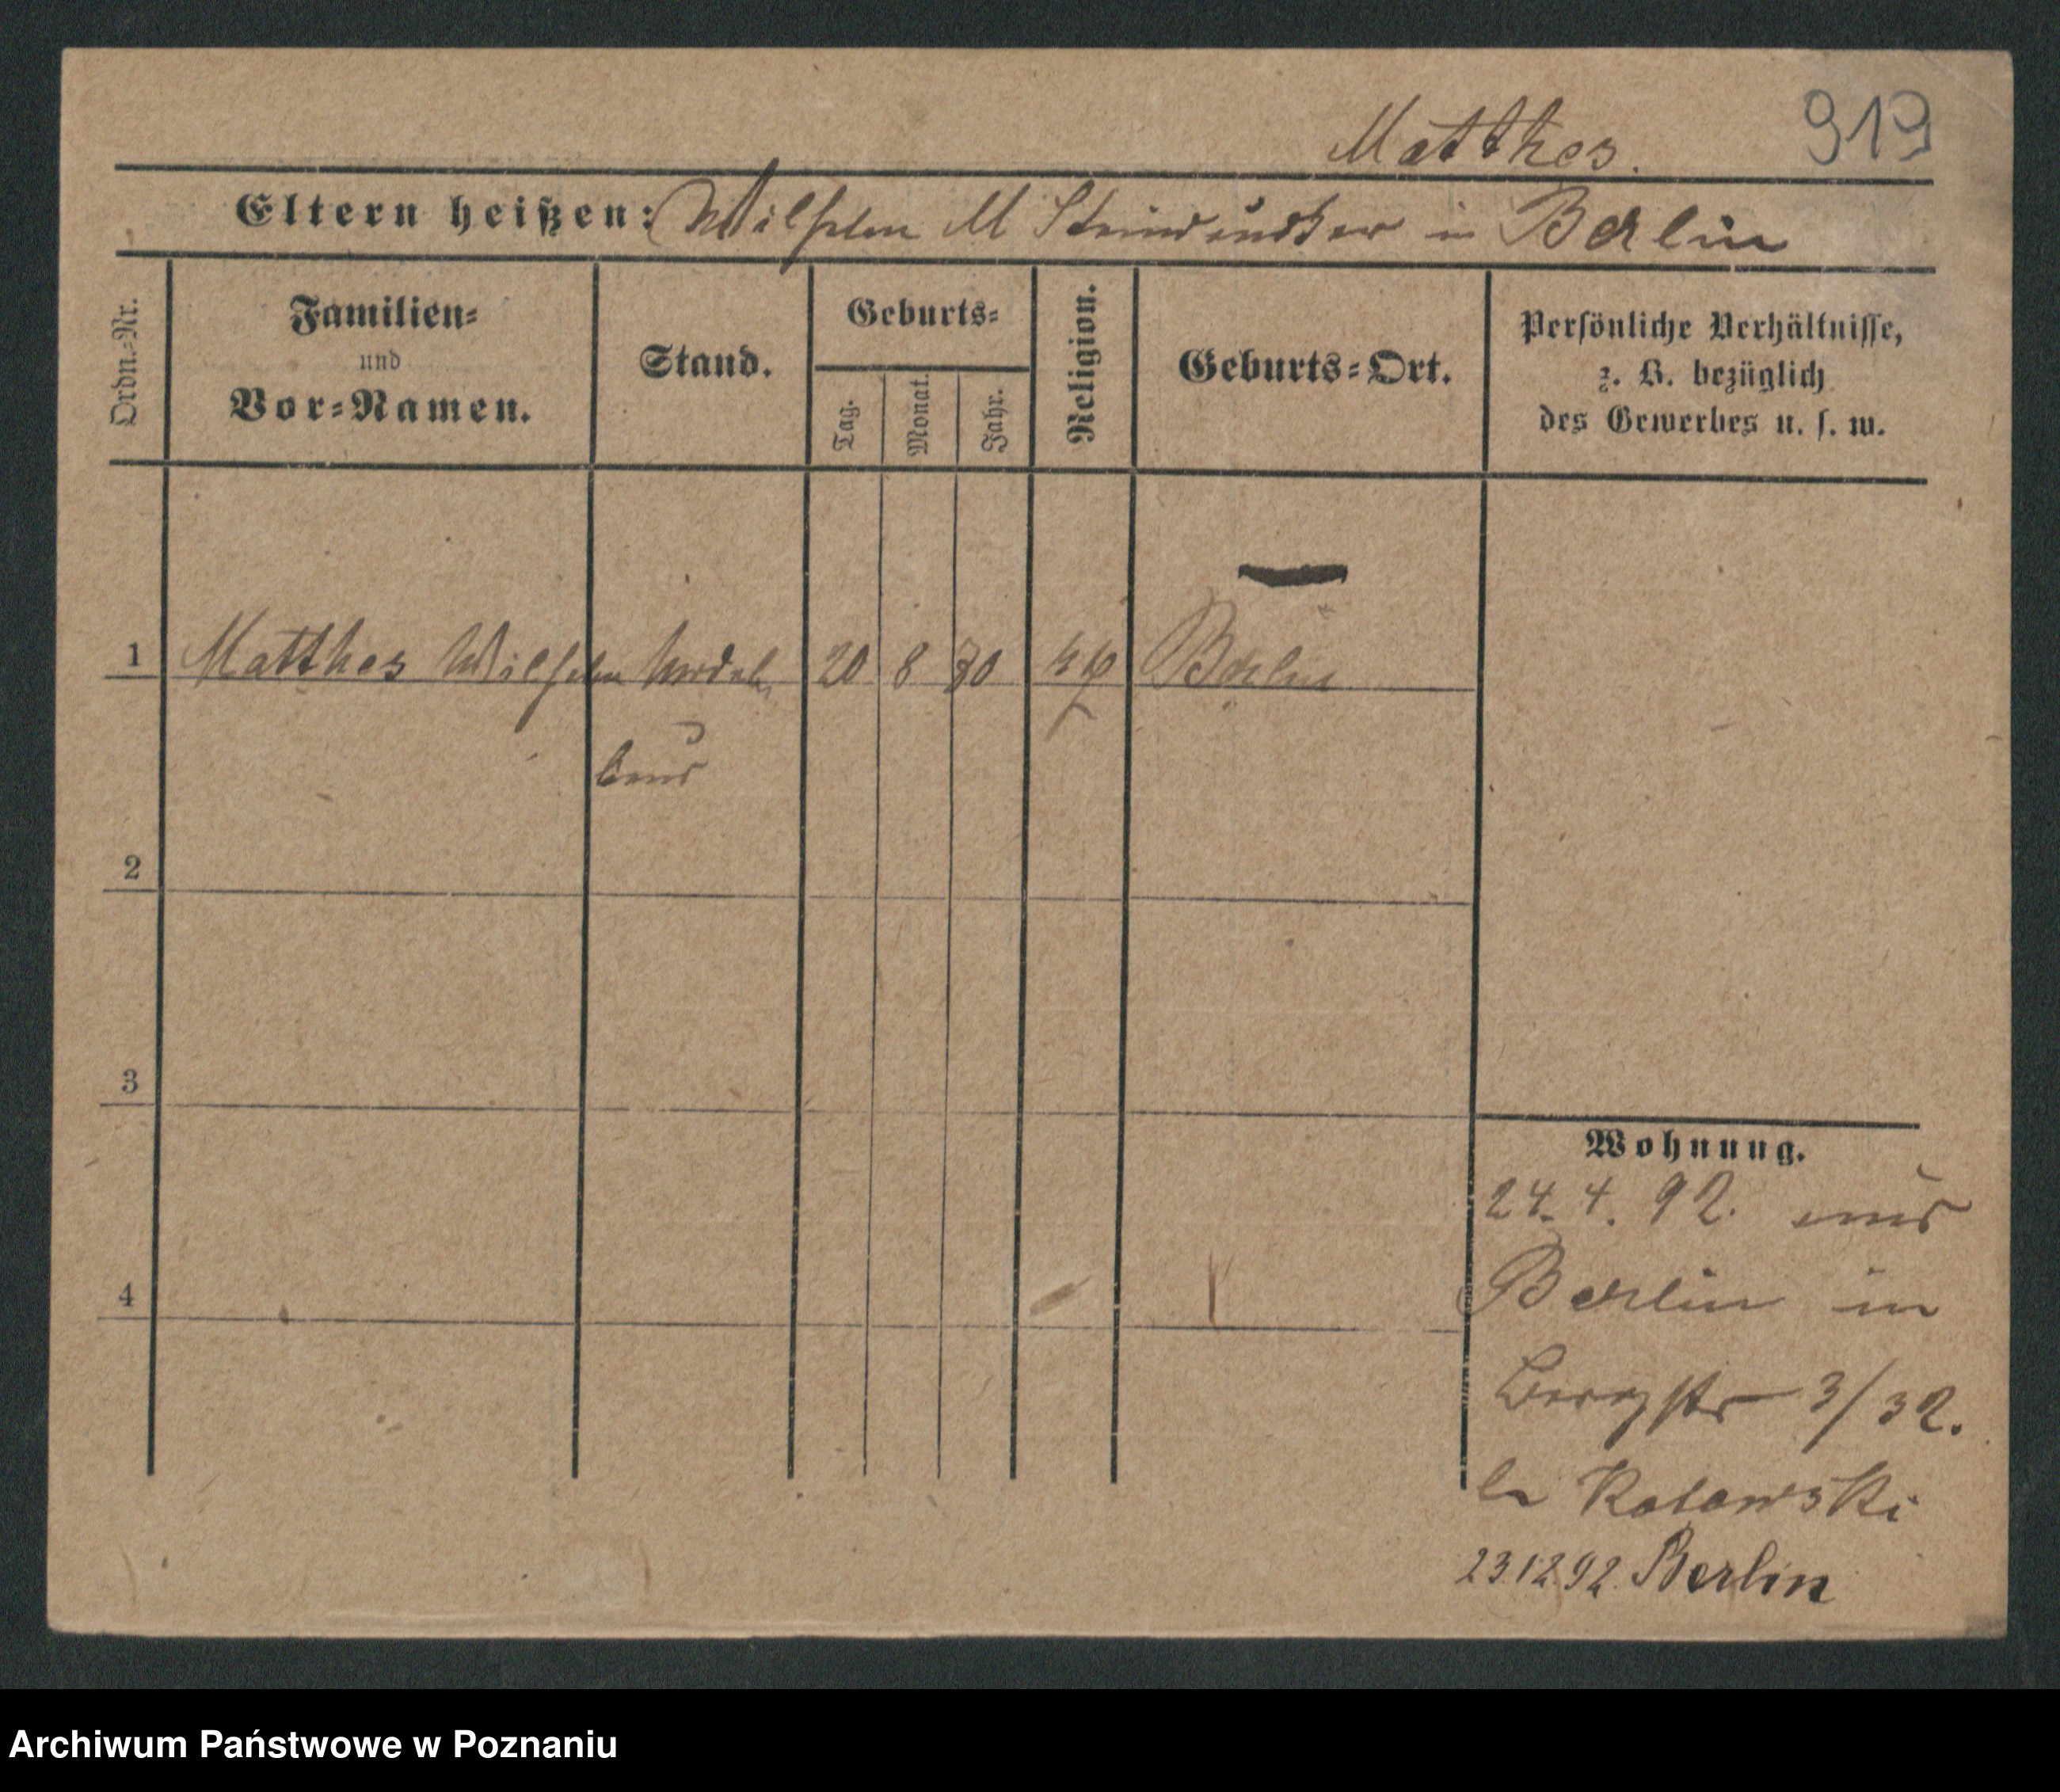 Matthes. 919
Eltern heißen: Wilhelm M Steindrucker in Berlin
Ordn.-Nr.
Familien-
und
Vor-Namen.
Stand.
Geburts-
Tag.
Monat.
Jahr.
Religion.
Geburts-Ort.
Persönliche Verhältnisse,
z. B. bezüglich
des Gewerbes u. s. w.
1 Matthes Wilhelm 20 8 Berlin
2
3
4
Wohnung.
24. 4. 92. aus
Berlin in
Bergstr 3/32.
23.12.92. Berlin
Archiwum Państwowe w Poznaniu